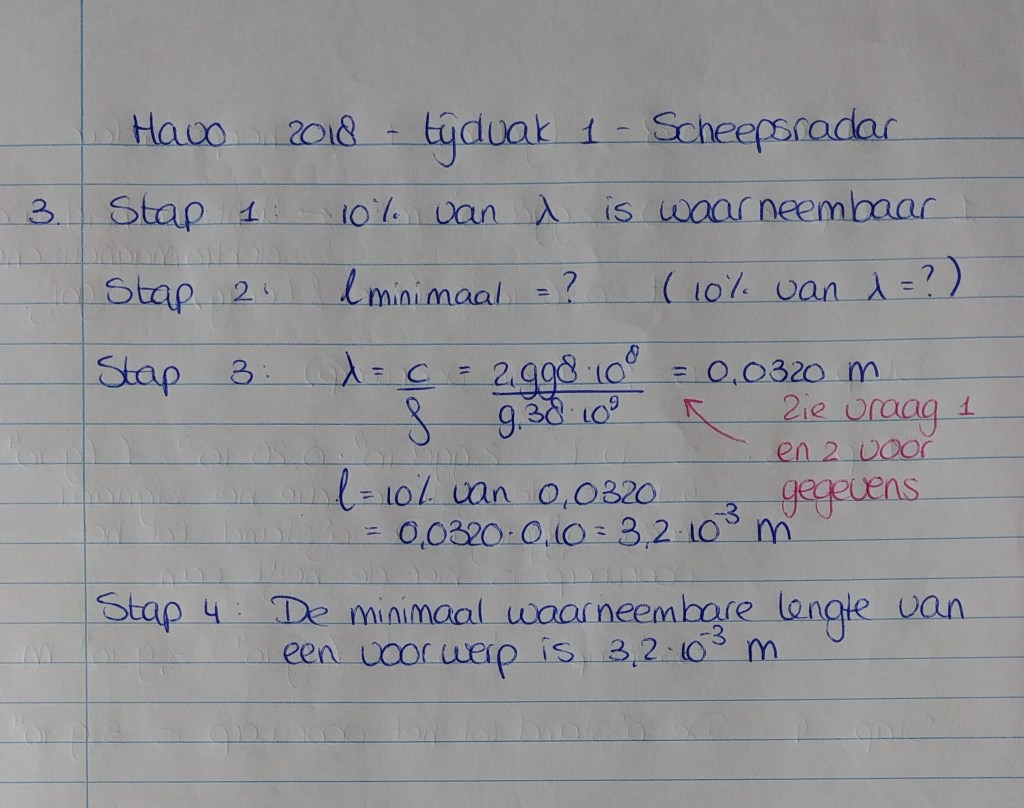 Havo 2018 - tijdvak 1 - Scheepsradar
3. Stap 1: 10% van λ is waarneembaar
Stap 2: l minimaal = ? (10% van λ = ?)
Stap 3: λ = c/f = 2,998·10⁸/9,38·10⁹ = 0,0320 m
Zie vraag 1
en 2 voor
gegevens
l = 10% van 0,0320
= 0,0320·0,10 = 3,2·10⁻³ m
Stap 4: De minimaal waarneembare lengte van
een voorwerp is 3,2·10⁻³ m